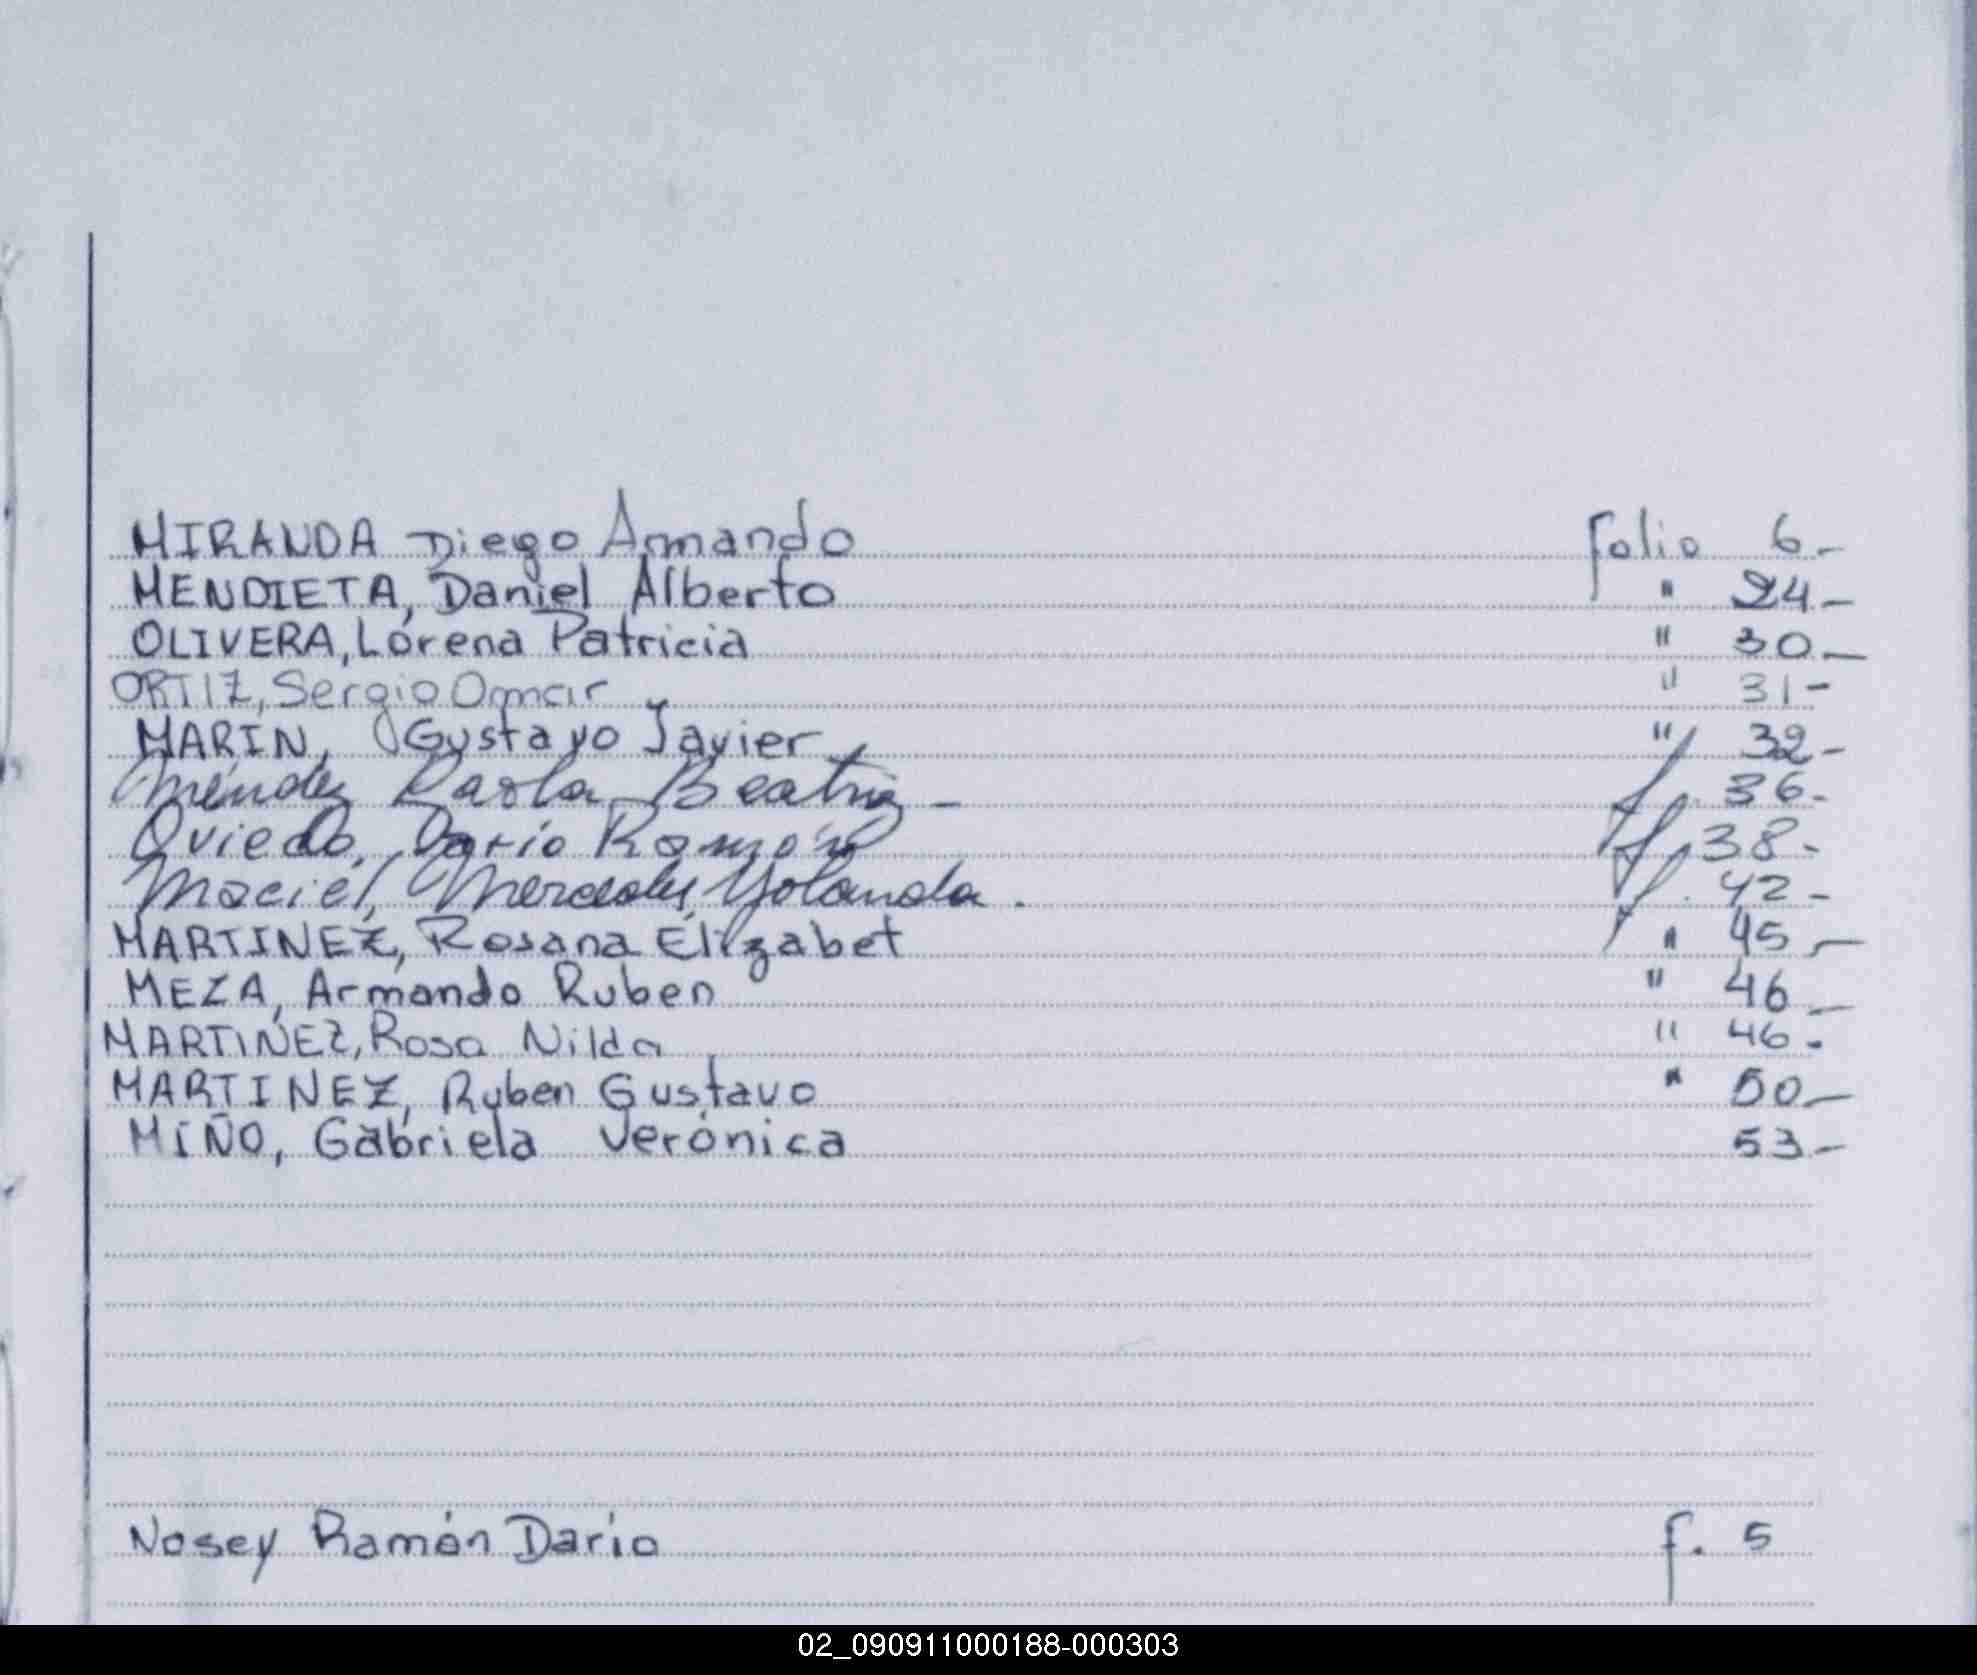 MIRANDA Diego Armando folio 6-
MENDIETA, Daniel Alberto " 24-
OLIVERA, Lorena Patricia " 30-
ORTIZ, Sergio Omar " 31-
MARIN, Gustavo Javier " 32-
Méndez Paola Beatriz - f. 36-
Oviedo, Darío Ramón f. 38-
Maciel, Mercedes Yolanda. f. 42-
MARTINEZ, Rosana Elizabet " 45-
MEZA, Armando Ruben " 46-
MARTINEZ, Rosa Nilda " 46.
MARTINEZ, Ruben Gustavo " 50-
MIÑO, Gabriela Verónica 53-
Nosey Ramón Darío f. 5
02_090911000188-000303